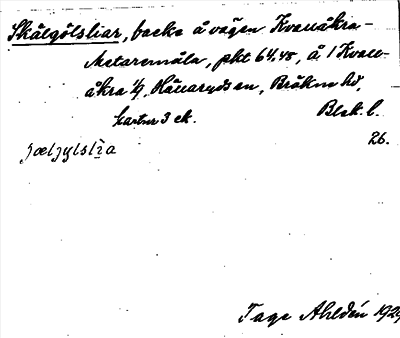 Skälgölsliar, backe å vägen Kvarnåkra-
Metaremåla, pkt 64,48, å 1 Kvarn-
åkra 1/1, Hällaryds sn, Bräkne hd,
kartur 3 ek. Blek. l.
26.
Tage Ahldén 192